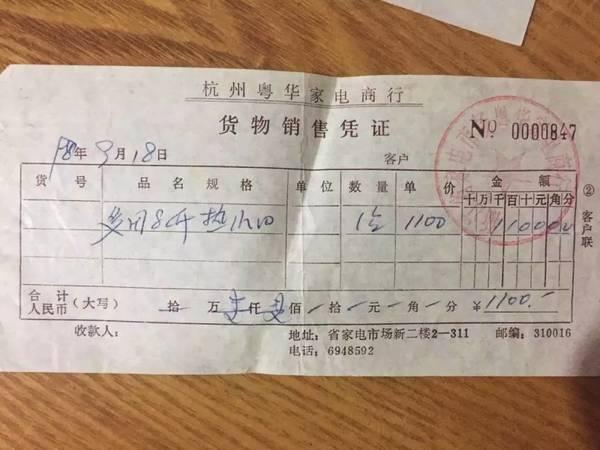 杭州粤华家电商行
货物销售凭证 № 0000847
98年9月18日 客户
货号 品名规格 单位 数量 单价 金额
十万千百十元角分
1台 1100 110000
合计人民币(大写) 拾万壹仟壹佰拾元角分 ¥1100.-
收款人: 地址: 省家电市场新二楼2-311 邮编: 310016
电话: 6948592
②客户联